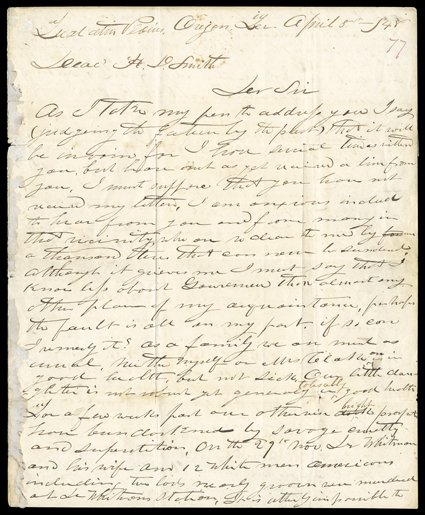 Tualatin Plains, Oregon Ter. April 5th 1848
77
Isaac H. D. Smith
Dear Sir
As I take my pen to address you I say
(judgeing the future by the past) that it will
be in vain, for I have several times written
you, but have not as yet received a line from
you, I must suppose that you have not
received my letters, I am anxious indeed
to hear from you and from many in
that vicinity who are so dear to me by
a thousand ties that can never be sundered
although it grieves me I must say that I
know less about than almost any
other place of my acquaintance, perhaps
the fault is all on my part. if so can
I remedy it? as a family we are much as
usual. Neither myself or Mrs Clark are in
good health, but not sick. Our little dau-
ghter is not robust yet generally in tolerably good health
For a few weeks past our otherwise bright prospects
have been darkened by savage cruelty
and superstition. On the 29th Nov. Dr Whitman
and his wife and 12 white men americans
including two lads nearly grown were murdered
at Dr Whitmans station, Dr is utterly impossible to